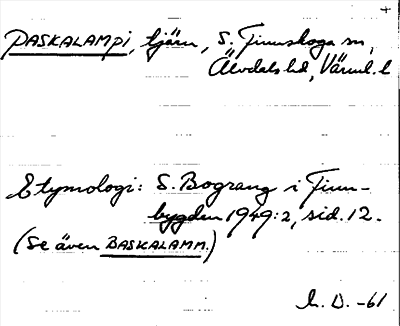 +
PASKALAMPI, tjärn, S. Finnskoga sn,
Älvdals hd, Värml. l
Etymologi: S. Bograng i Finn-
bygden 1949:2, sid. 12.
(Se även BASKALAMM.)
h. D. -61